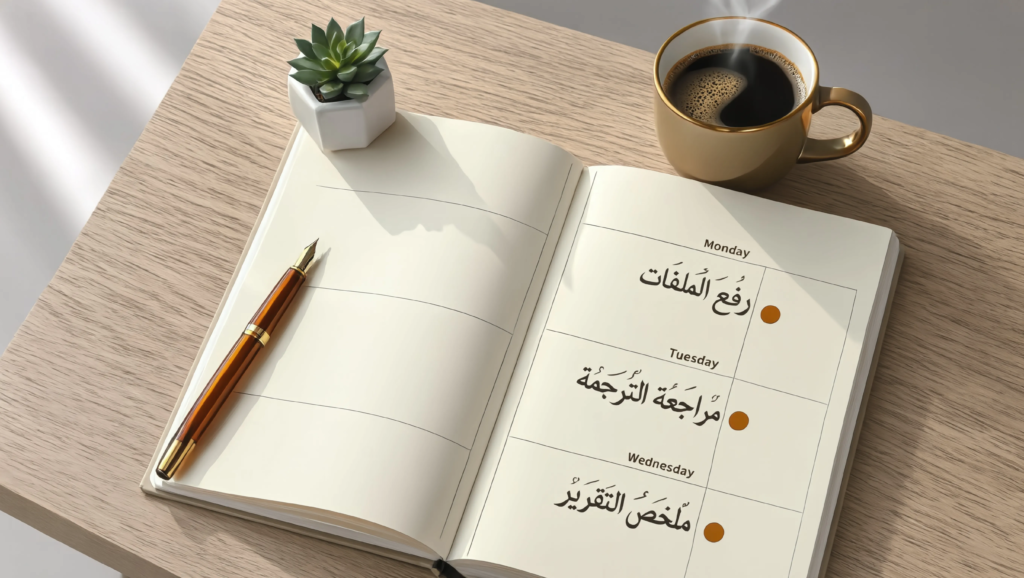 Monday
رفُعَ الُملفَات
Tuesday
مُراجَعُة التُرجَمُة
Wednesday
مُلخَصُ التَقرَيرُ